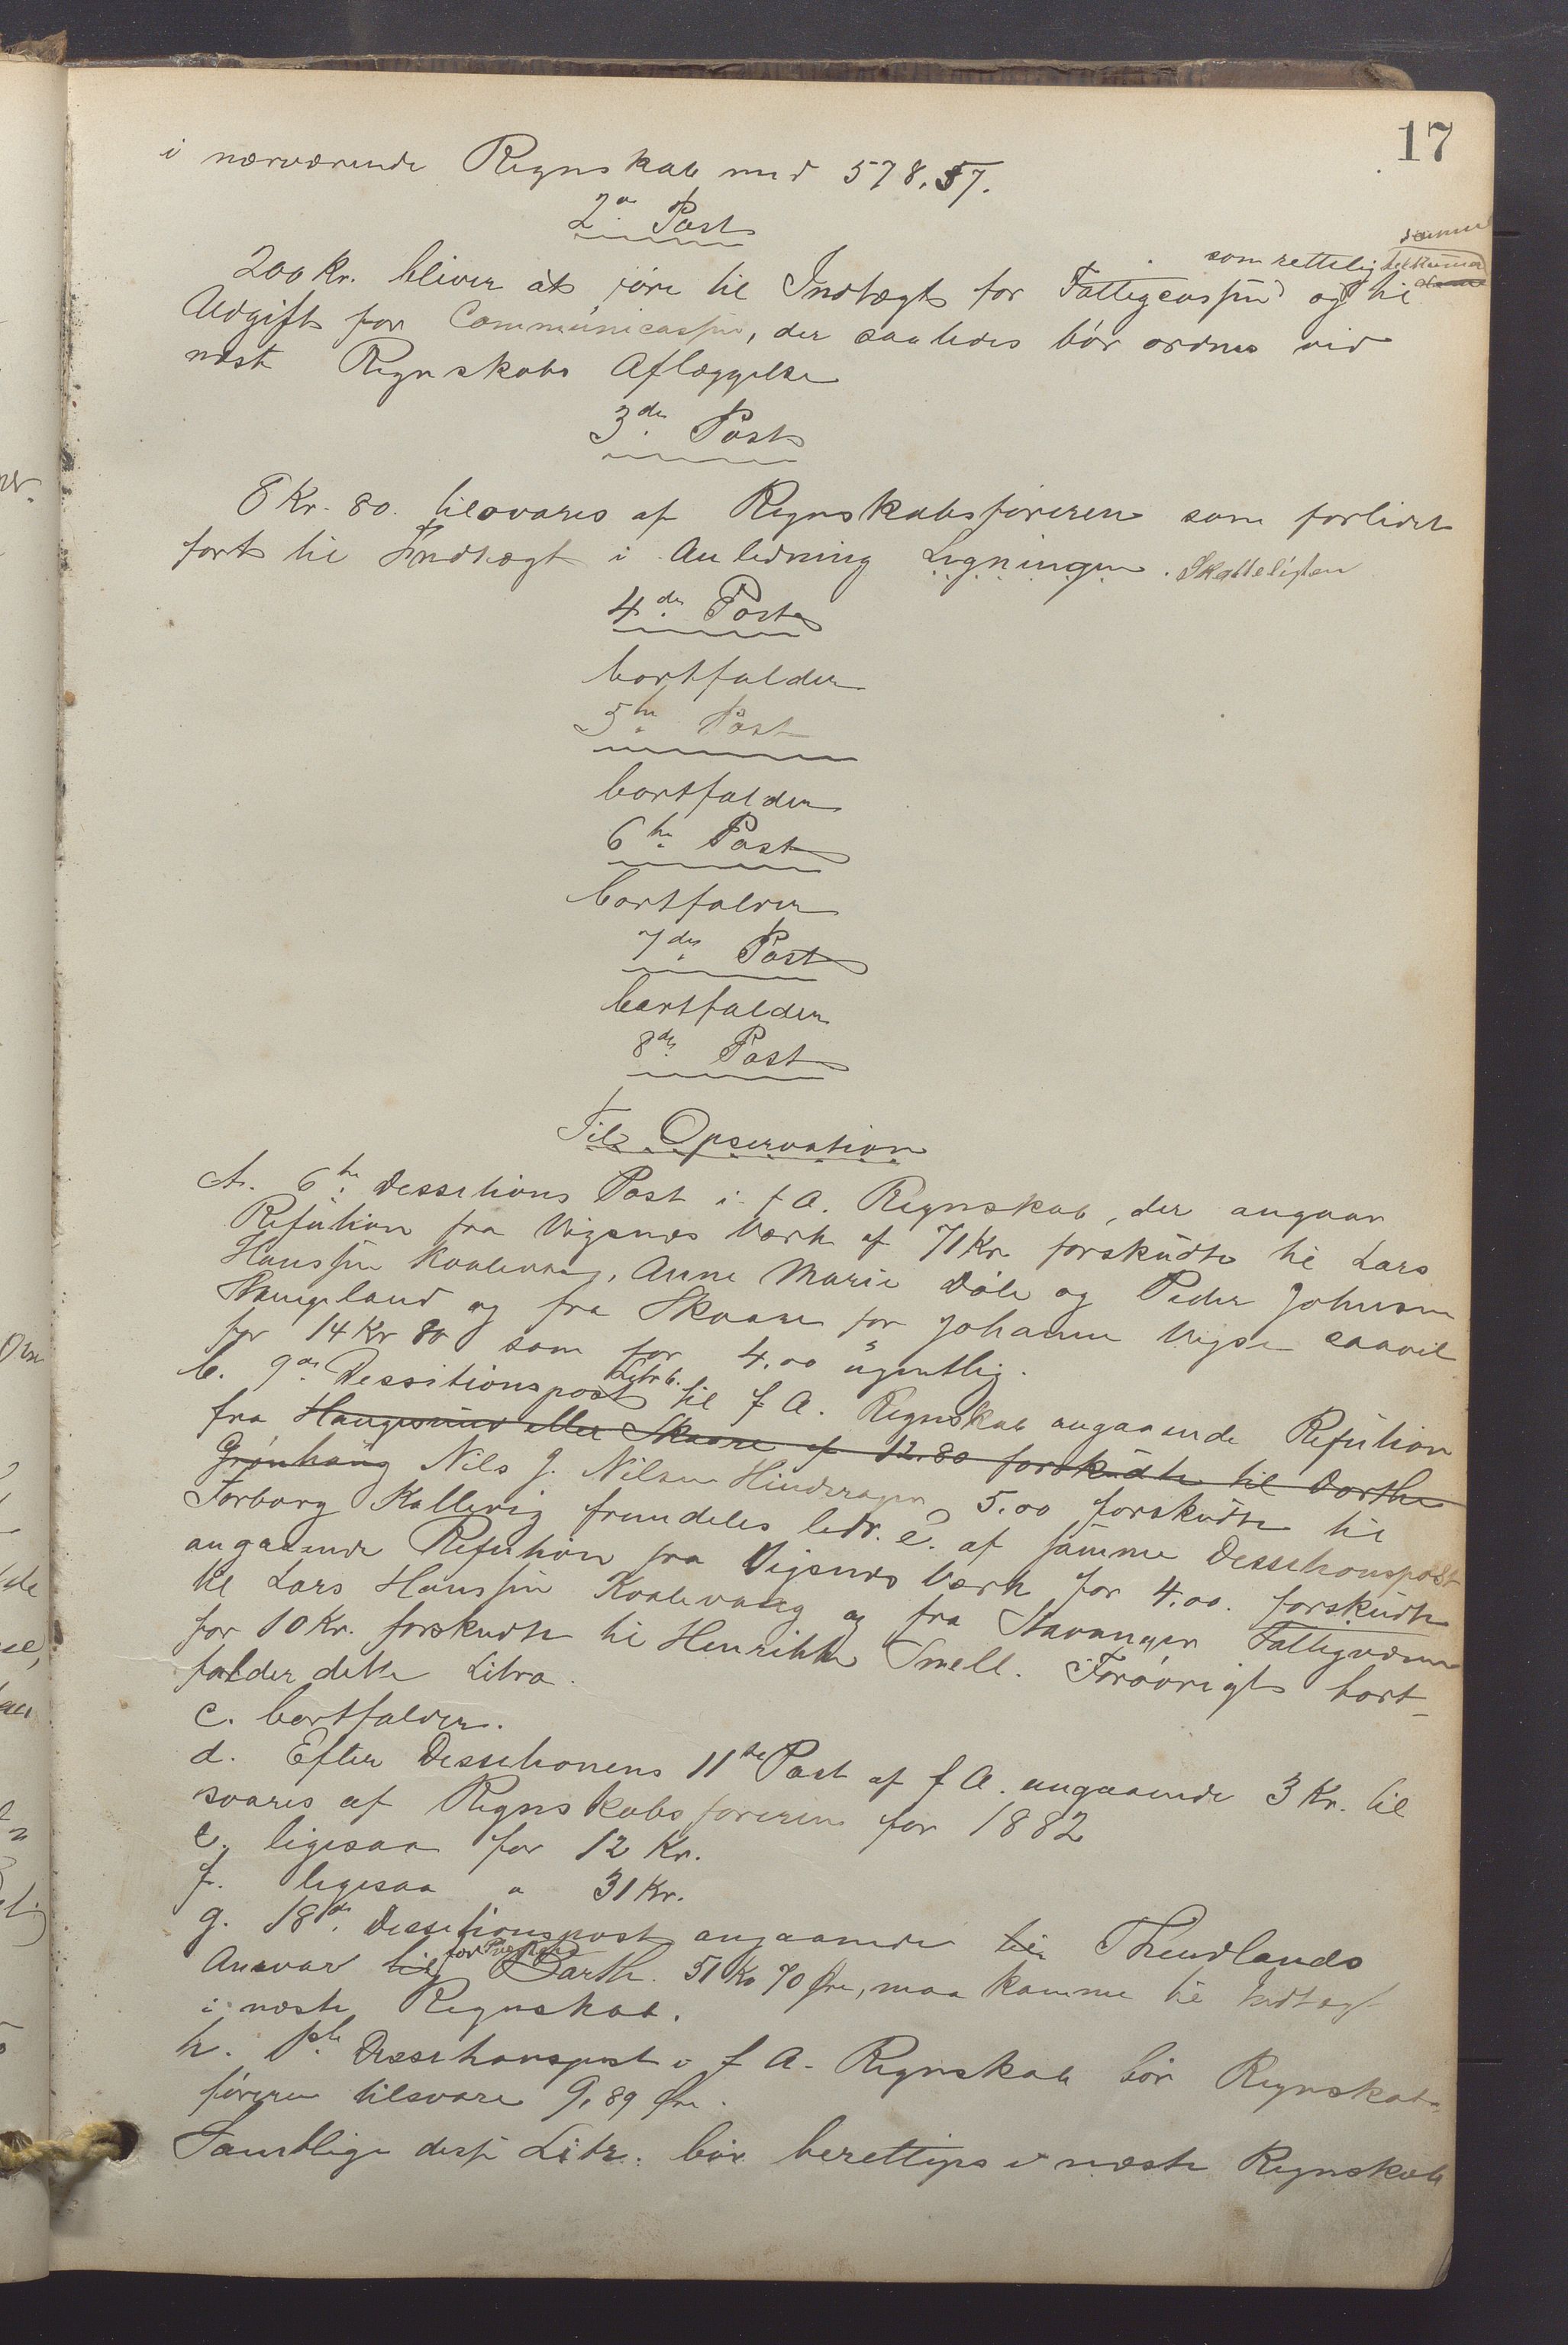 17
i nærværende Regnskab med 578.57.
2den Post
200 Kr. bliver at føre til Indtægt for Fattigcassen som rettelig tilkommer samme og til
Udgift for Communicassen, der saaledes bør ordnes ved
næste Regnskabs Aflæggelse
3die Post
8 Kr. 80. tilsvares af Regnskabsføreren som forlidet
ført til Indtægt i Anledning Ligningen. Skattelisten
4de Post
bortfalder
5te Post
bortfalder
6te Post
bortfalder
7de Post
bortfalder
8de Post
Til Opservation
A. 6te Dessitions Post i f A. Regnskab, der angaar
Refution fra Vigsnes Værk af 71 Kr forskudte til Lars
Hanssen Koalevaag, Anne Marie Dale og Peder Johnsen
Stangeland og fra Skaare for Johanne Vigse saavel
for 14 Kr 80 som for 4.00 ugentlig.
b. 9de Dessitionspost Litr b. til f A. Regnskab angaaende Refution
fra Haugesund eller Skaare af 12.80 forskudte til Dorthe
Grønhaug Nils J. Nilsen Hinderager 5.00 forskudte til
Torborg Kallevig fremdeles litr. e. af samme Dessitionspost
angaaende Refution fra Vigsnes Værk for 4.00. forskudte
til Lars Hanssen Koalevaag og fra Stavanger Fattigvæsen
for 10 Kr. forskudte til Henrikke Smell. Forøvrigt bort-
falder dette Litra.
c. bortfalder.
d. Efter Dessitionens 11te Post af f A. angaaende 3 Kr. til
svares af Regnskabsføreren for 1882
e. ligesaa for 12 Kr.
f. ligesaa " 31 Kr.
g. 18de Dessitionspost angaaende til Thendlands
Ansvar til for Barth. 51 Kr 70 Øre, maa komme til Indtægt
i næste Regnskab.
h. 1ste Dessitionspost i f A. Regnskab bør Regnskabs-
føreren tilsvare 9,89 Øre.
Samtlige disse Litr. bør berettiges i næste Regnskab